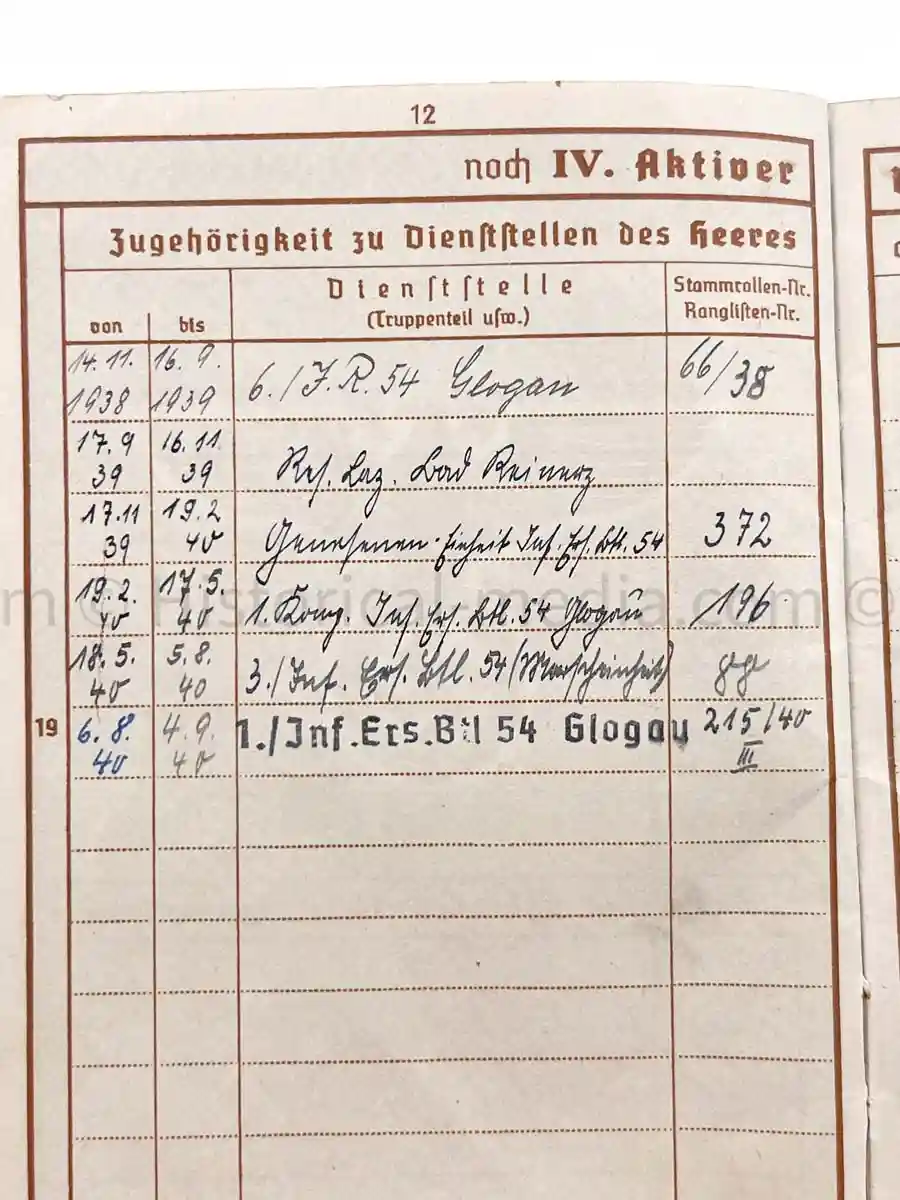 12
noch IV. Aktiver
Zugehörigkeit zu Dienststellen des Heeres
von bis
Dienststelle
(Truppenteil usw.)
Stammrollen-Nr.
Ranglisten-Nr.
14.11. 1938 16.9. 1939 6./J.R. 54 Glogau 66/38
17.9 39 16.11 39 Res. Laz. Bad Reinerz
17.11 39 19.2 40 Genesenen-Einheit Inf. Ers. Btl. 54 372
19.2. 40 17.5. 40 1. Komp. Inf. Ers. Btl. 54 Glogau 196
18.5. 40 5.8. 40 3./Inf. Ers. Btl. 54 (Marscheinheit)
19 6.8. 40 4.9. 40 1./Inf.Ers.Btl 54 Glogau 215/40 III
m © Historical-media.com ©